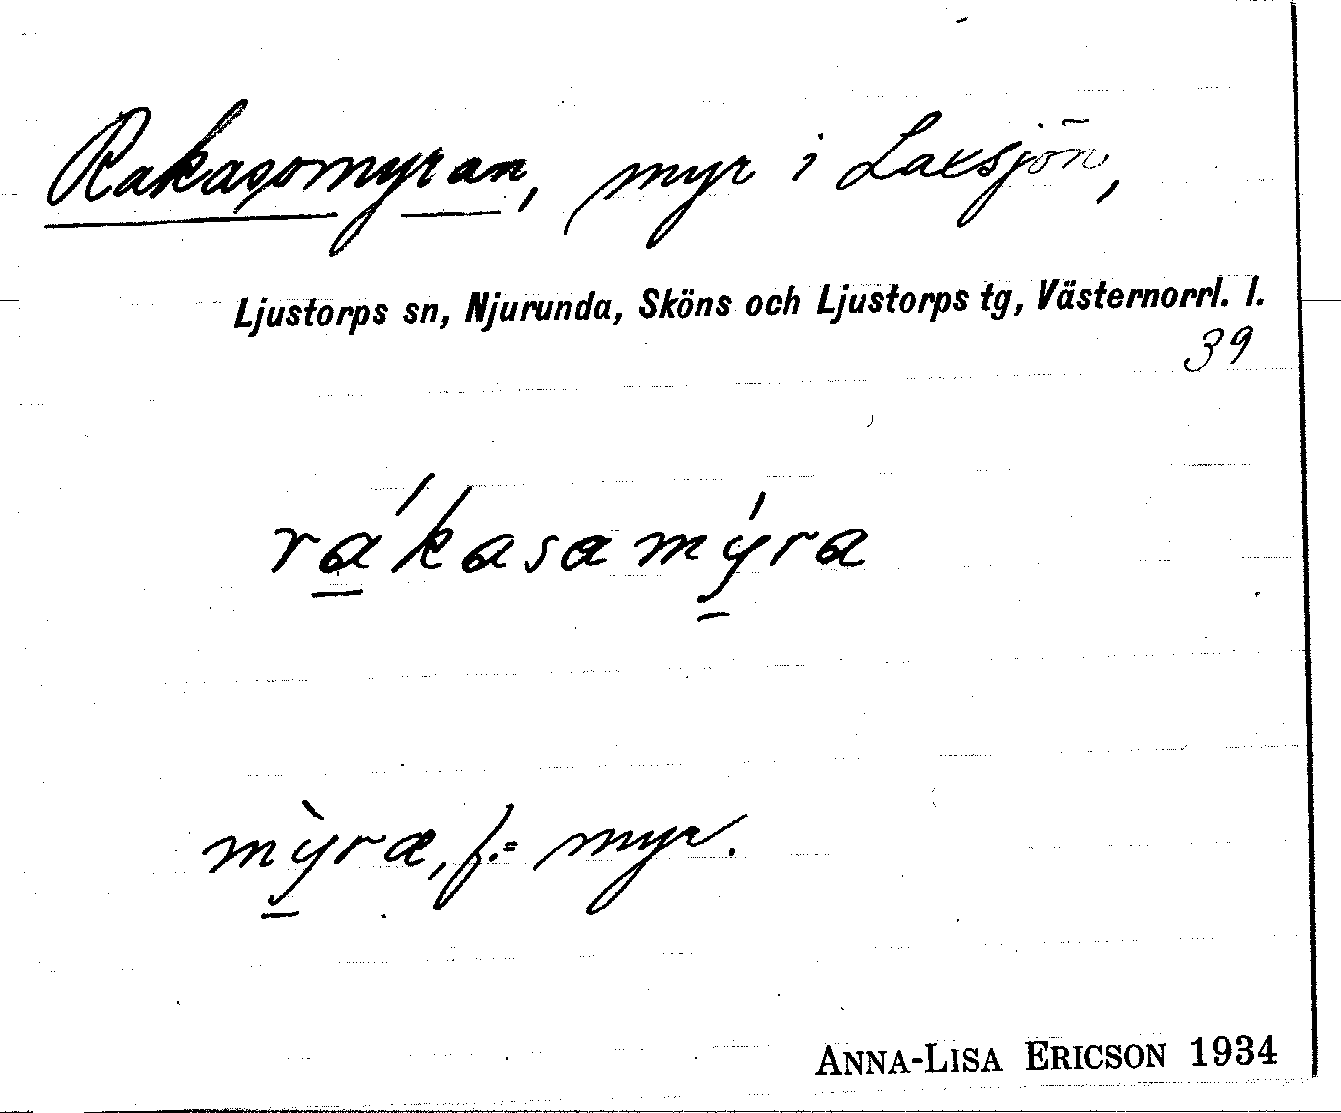 Rakasomyran, myr i Laxsjön,
Ljustorps sn, Njurunda, Sköns och Ljustorps tg, Västernorrl. l.
39
ra̲´kasamý̲ra
mỳ̲ra, f. = myr.
ANNA-LISA ERICSON 1934